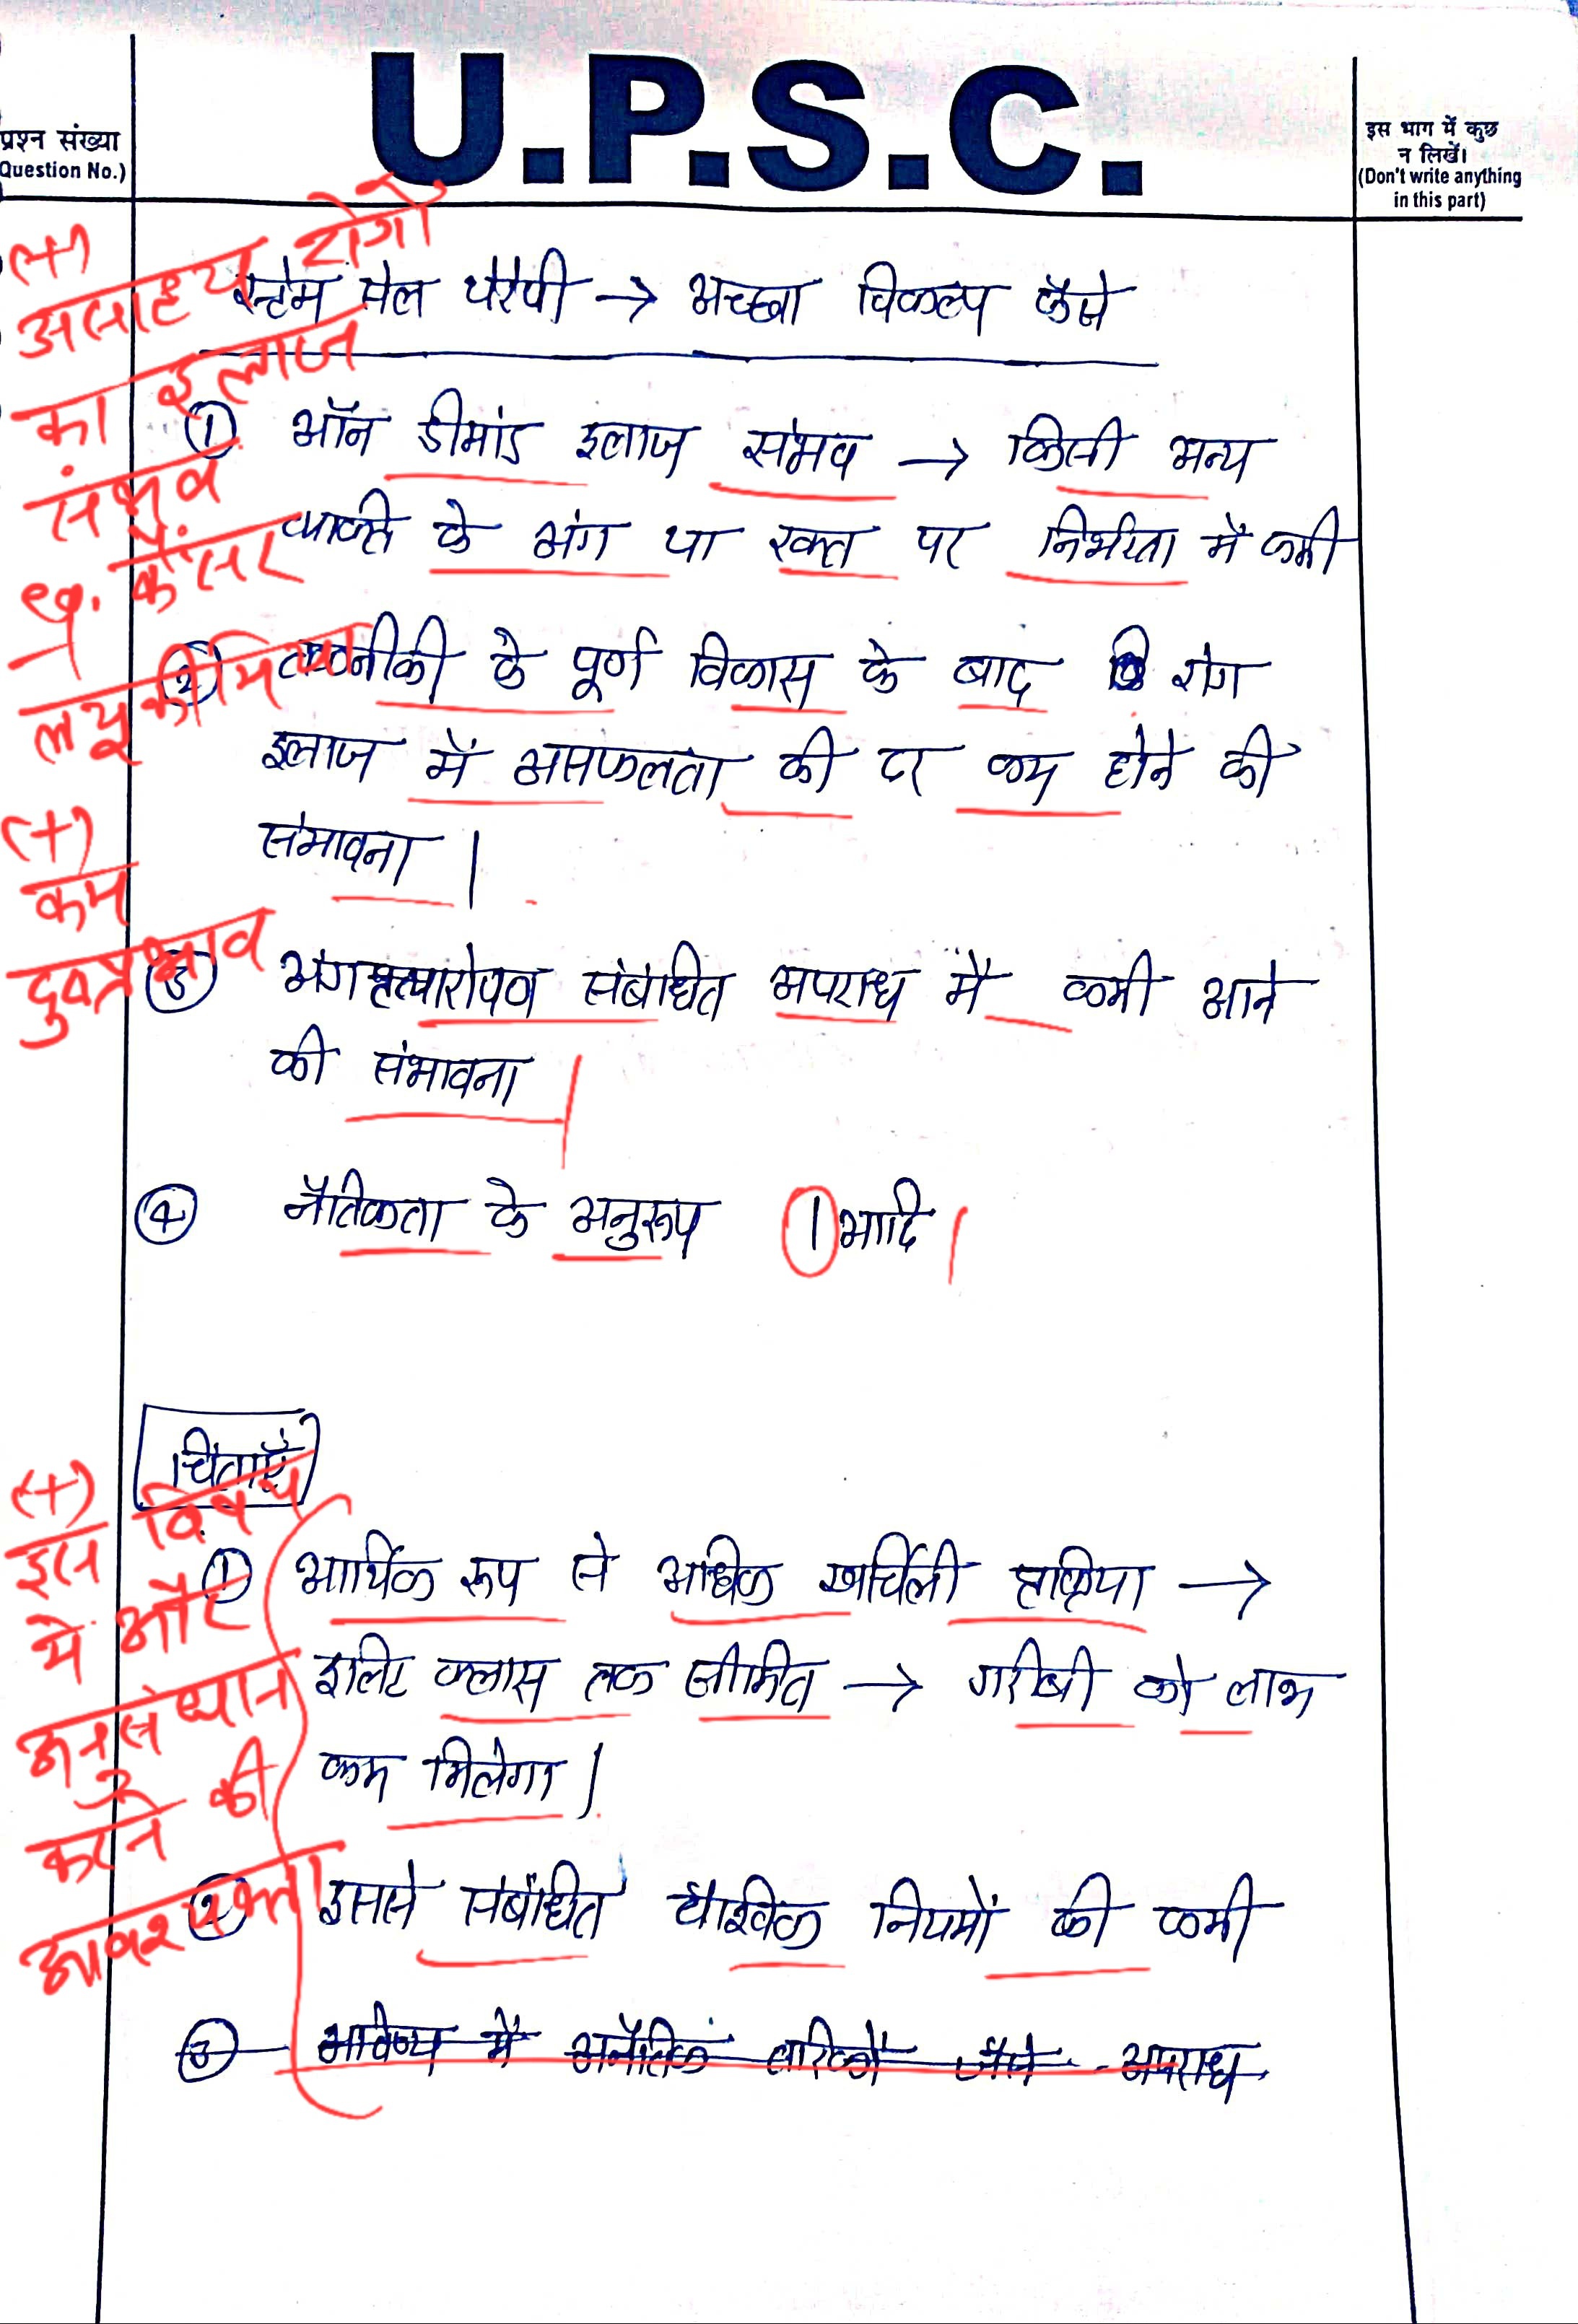 U.P.S.C.
प्रश्न संख्या
(Question No.)
इस भाग में कुछ
न लिखें।
(Don't write anything
in this part)
स्टेम सेल थेरेपी → अच्छा विकल्प कैसे
① ऑन डीमांड इलाज संभव → किसी अन्य
व्यक्ति के अंग या रक्त पर निर्भरता में कमी
② तकनीकी के पूर्ण विकास के बाद रोग
इलाज में असफलता की दर कम होने की
संभावना।
③ अंगप्रत्यारोपण संबंधित अपराध में कमी आने
की संभावना
④ नैतिकता के अनुरूप । आदि।
चिंताएँ
① आर्थिक रूप से अधिक खर्चिली प्रक्रिया →
इलिट क्लास तक सीमित → गरीबी को लाभ
कम मिलेगा।
② इससे संबंधित वैश्विक नियमों की कमी
③ भविष्य में अनैतिक तरीकों जैसे अपराध
(+)
असाध्य रोगों
का इलाज
संभव
कैंसर
ल्यूकीमिया
(+)
कम
दुष्प्रभाव
(+)
इस विषय
में और
अनुसंधान
करने की
आवश्यकता